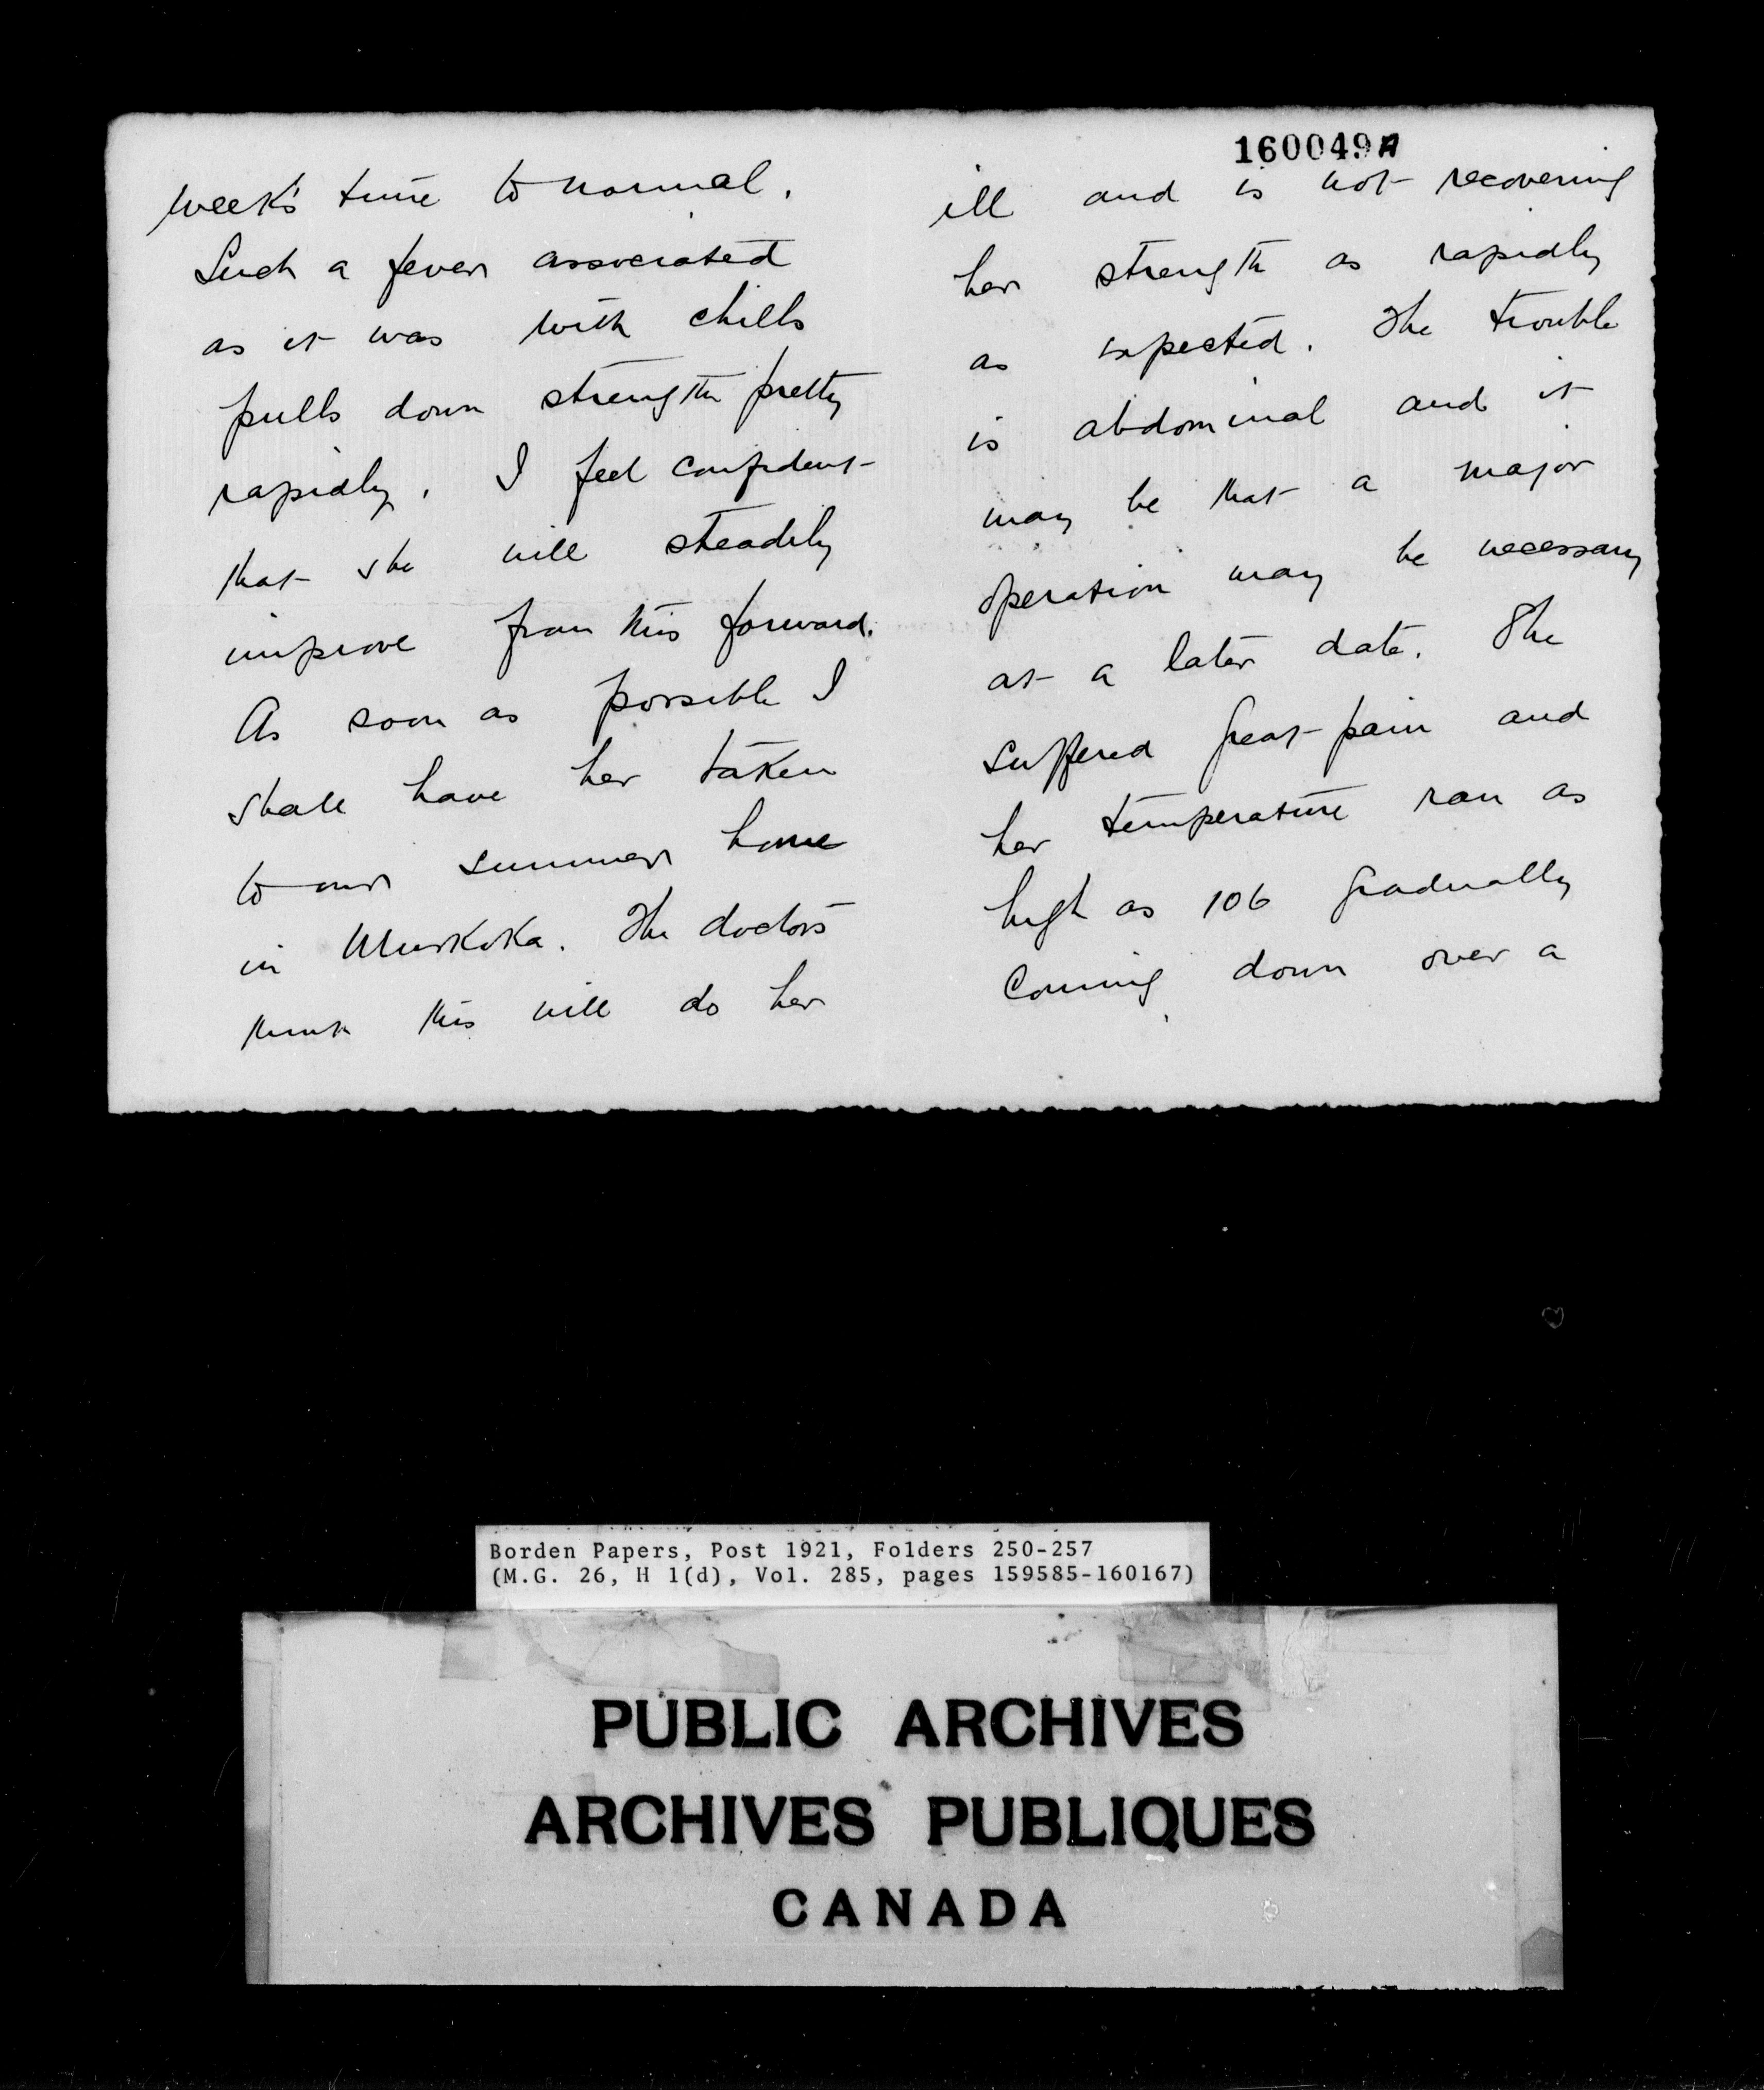 week's time to normal.
Such a fever associated
as it was with chills
pulls down strength pretty
rapidly. I feel confident
that she will steadily
improve from this forward.
As soon as possible I
shall have her taken
to our summer home
in Muskoka. The doctors
think this will do her
160049A
ill and is not recovering
her strength as rapidly
as expected. The trouble
is abdominal and it
may be that a major
operation may be necessary
at a later date. She
suffered great pain and
her temperature ran as
high as 106 gradually
coming down over a
Borden Papers, Post 1921, Folders 250-257
(M.G. 26, H 1(d), Vol. 285, pages 159585-160167)
PUBLIC ARCHIVES
ARCHIVES PUBLIQUES
CANADA